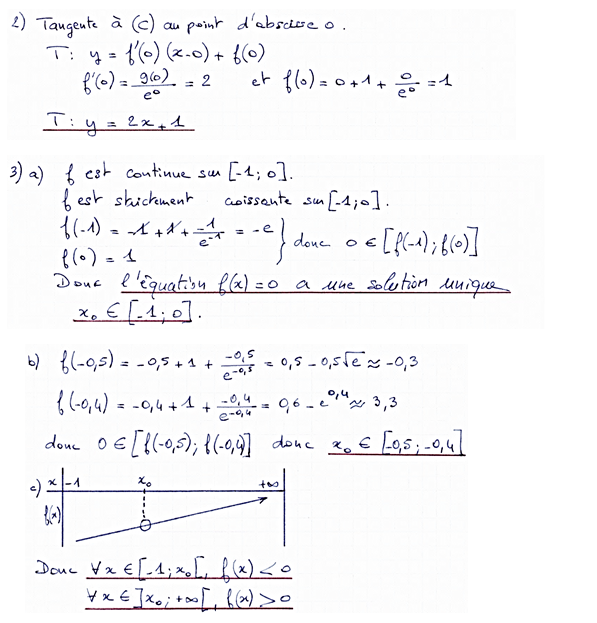 2) Tangente à (C) au point d'abscisse 0.
T: y = f'(0) (x-0) + f(0)
f'(0) = g(0)/e⁰ = 2 et f(0) = 0 + 1 + 0/e⁰ = 1
T: y = 2x + 1
3) a) f est continue sur [-1; 0].
f est strictement croissante sur [-1; 0].
f(-1) = -1 + 1 + -1/e⁻¹ = -e
f(0) = 1 } donc 0 ∈ [f(-1); f(0)]
Donc l'équation f(x) = 0 a une solution unique
x₀ ∈ [-1; 0].
b) f(-0,5) = -0,5 + 1 + -0,5/e^-0,5 = 0,5 - 0,5√e ≈ -0,3
f(-0,4) = -0,4 + 1 + -0,4/e^-0,4 = 0,6 - e^0,4 ≈ 3,3
donc 0 ∈ [f(-0,5); f(-0,4)] donc x₀ ∈ [-0,5; -0,4]
c) x -1 x₀ +∞
f(x)
Donc ∀x ∈ [-1; x₀[, f(x) < 0
∀x ∈ ]x₀; +∞[, f(x) > 0